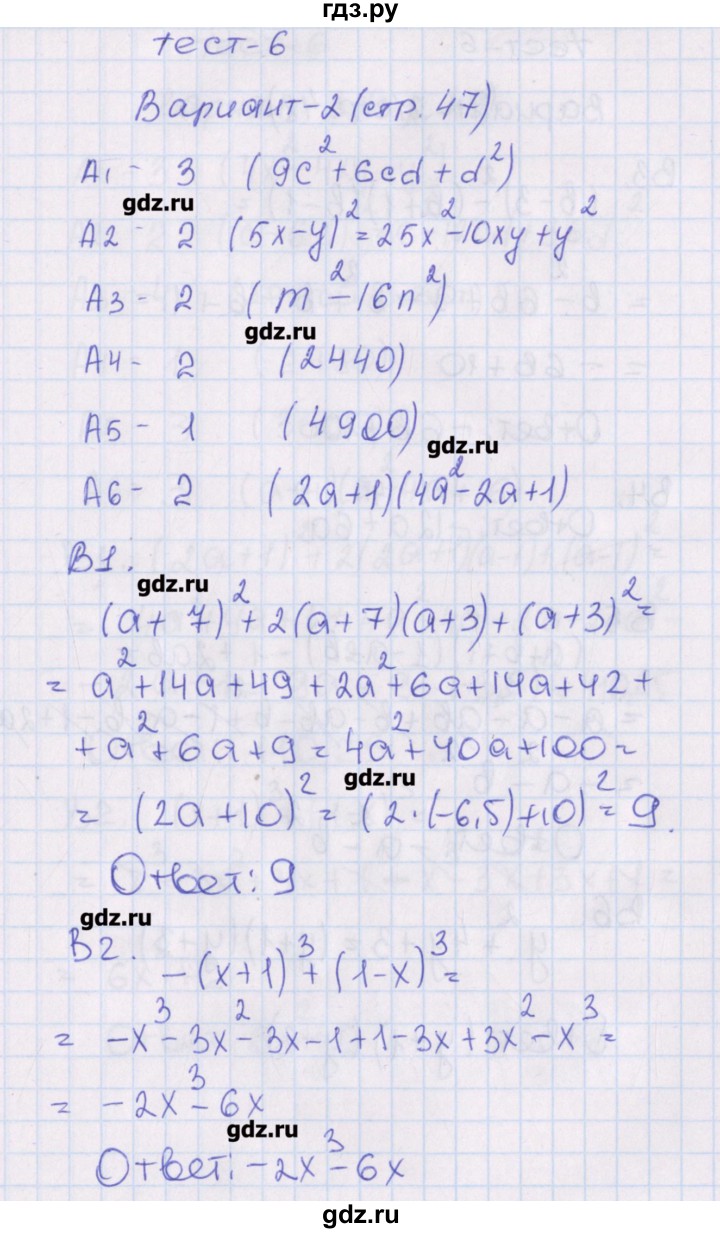 гдз.ру
тест-6
Вариант-2 (стр. 47)
А1 - 3 (9c²+6cd+d²)
gdz.ru
А2 - 2 (5x-y)²=25x²-10xy+y²
А3 - 2 (m²-16n²)
gdz.ru
А4 - 2 (2440)
А5 - 1 (4900)
gdz.ru
А6 - 2 (2a+1)(4a²-2a+1)
В1.
gdz.ru
(a+7)²+2(a+7)(a+3)+(a+3)²=
= a²+14a+49+2a²+6a+14a+42+
+a²+6a+9=4a²+40a+100=
gdz.ru
= (2a+10)²=(2·(-6,5)+10)²=9.
Ответ: 9
gdz.ru
В2.
-(x+1)³+(1-x)³=
= -x³-3x²-3x-1+1-3x+3x²-x³=
= -2x³-6x
gdz.ru
Ответ: -2x³-6x
gdz.ru